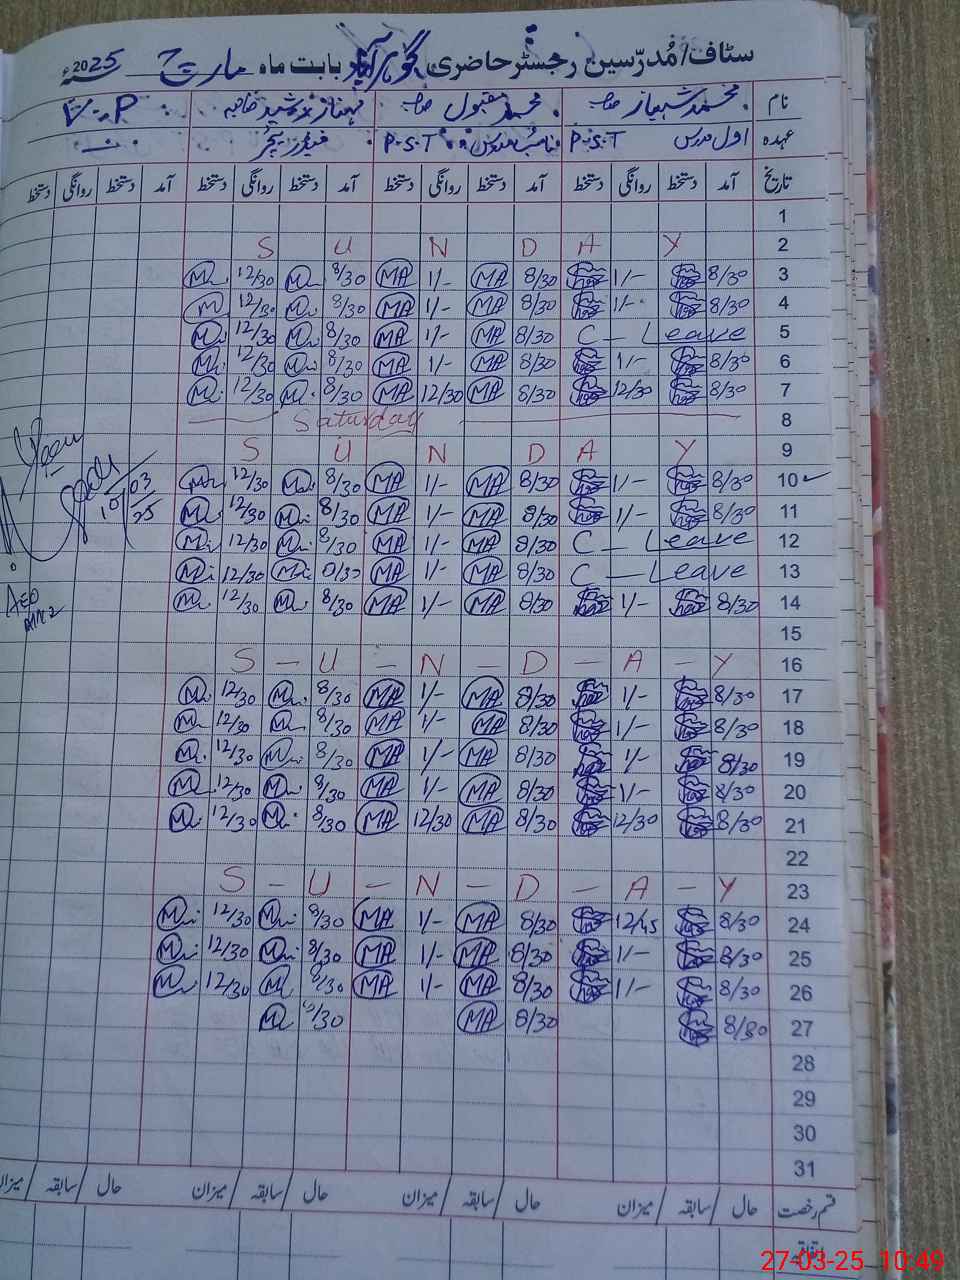 سٹاف/مُدرّسین رجسٹر حاضری گوہرآباد بابت ماہ مارچ سنہ 2025ء
نام محمد شہباز صاحب محمد مقبول صاحب شہناز خورشید صاحبہ V-P
عہدہ اول مدرس P.S.T نائب مدرس P.S.T
تاریخ آمد دستخط روانگی دستخط آمد دستخط روانگی دستخط آمد دستخط روانگی دستخط آمد دستخط روانگی دستخط
1
S U N D A Y 2
12/30 8/30 MA 1/- MA 8/30 1/- 8/30 3
12/30 8/30 MA 1/- MA 8/30 1/- 8/30 4
12/30 8/30 MA 1/- MA 8/30 C — Leave 5
12/30 8/30 MA 1/- MA 8/30 1/- 8/30 6
12/30 8/30 MA 12/30 MA 8/30 12/30 8/30 7
Saturday 8
S U N D A Y 9
12/30 8/30 MA 1/- MA 8/30 1/- 8/30 10
12/30 8/30 MA 1/- MA 8/30 1/- 8/30 11
12/30 8/30 MA 1/- MA 8/30 C — Leave 12
12/30 8/30 MA 1/- MA 8/30 C — Leave 13
12/30 8/30 MA 1/- MA 8/30 1/- 8/30 14
15
S - U - N - D - A - Y 16
12/30 8/30 MA 1/- MA 8/30 1/- 8/30 17
12/30 8/30 MA 1/- MA 8/30 1/- 8/30 18
12/30 8/30 MA 1/- MA 8/30 1/- 8/30 19
12/30 8/30 MA 1/- MA 8/30 1/- 8/30 20
12/30 8/30 MA 12/30 MA 8/30 12/30 8/30 21
22
S - U - N - D - A - Y 23
12/30 8/30 MA 1/- MA 8/30 12/45 8/30 24
12/30 8/30 MA 1/- MA 8/30 1/- 8/30 25
12/30 8/30 MA 1/- MA 8/30 1/- 8/30 26
8/30 MA 8/30 8/30 27
28
29
30
31
قسم رخصت حال / سابقہ / میزان حال / سابقہ / میزان حال / سابقہ / میزان حال / سابقہ / میزان
Seen
10/03/25
AEO
27-03-25 10:49